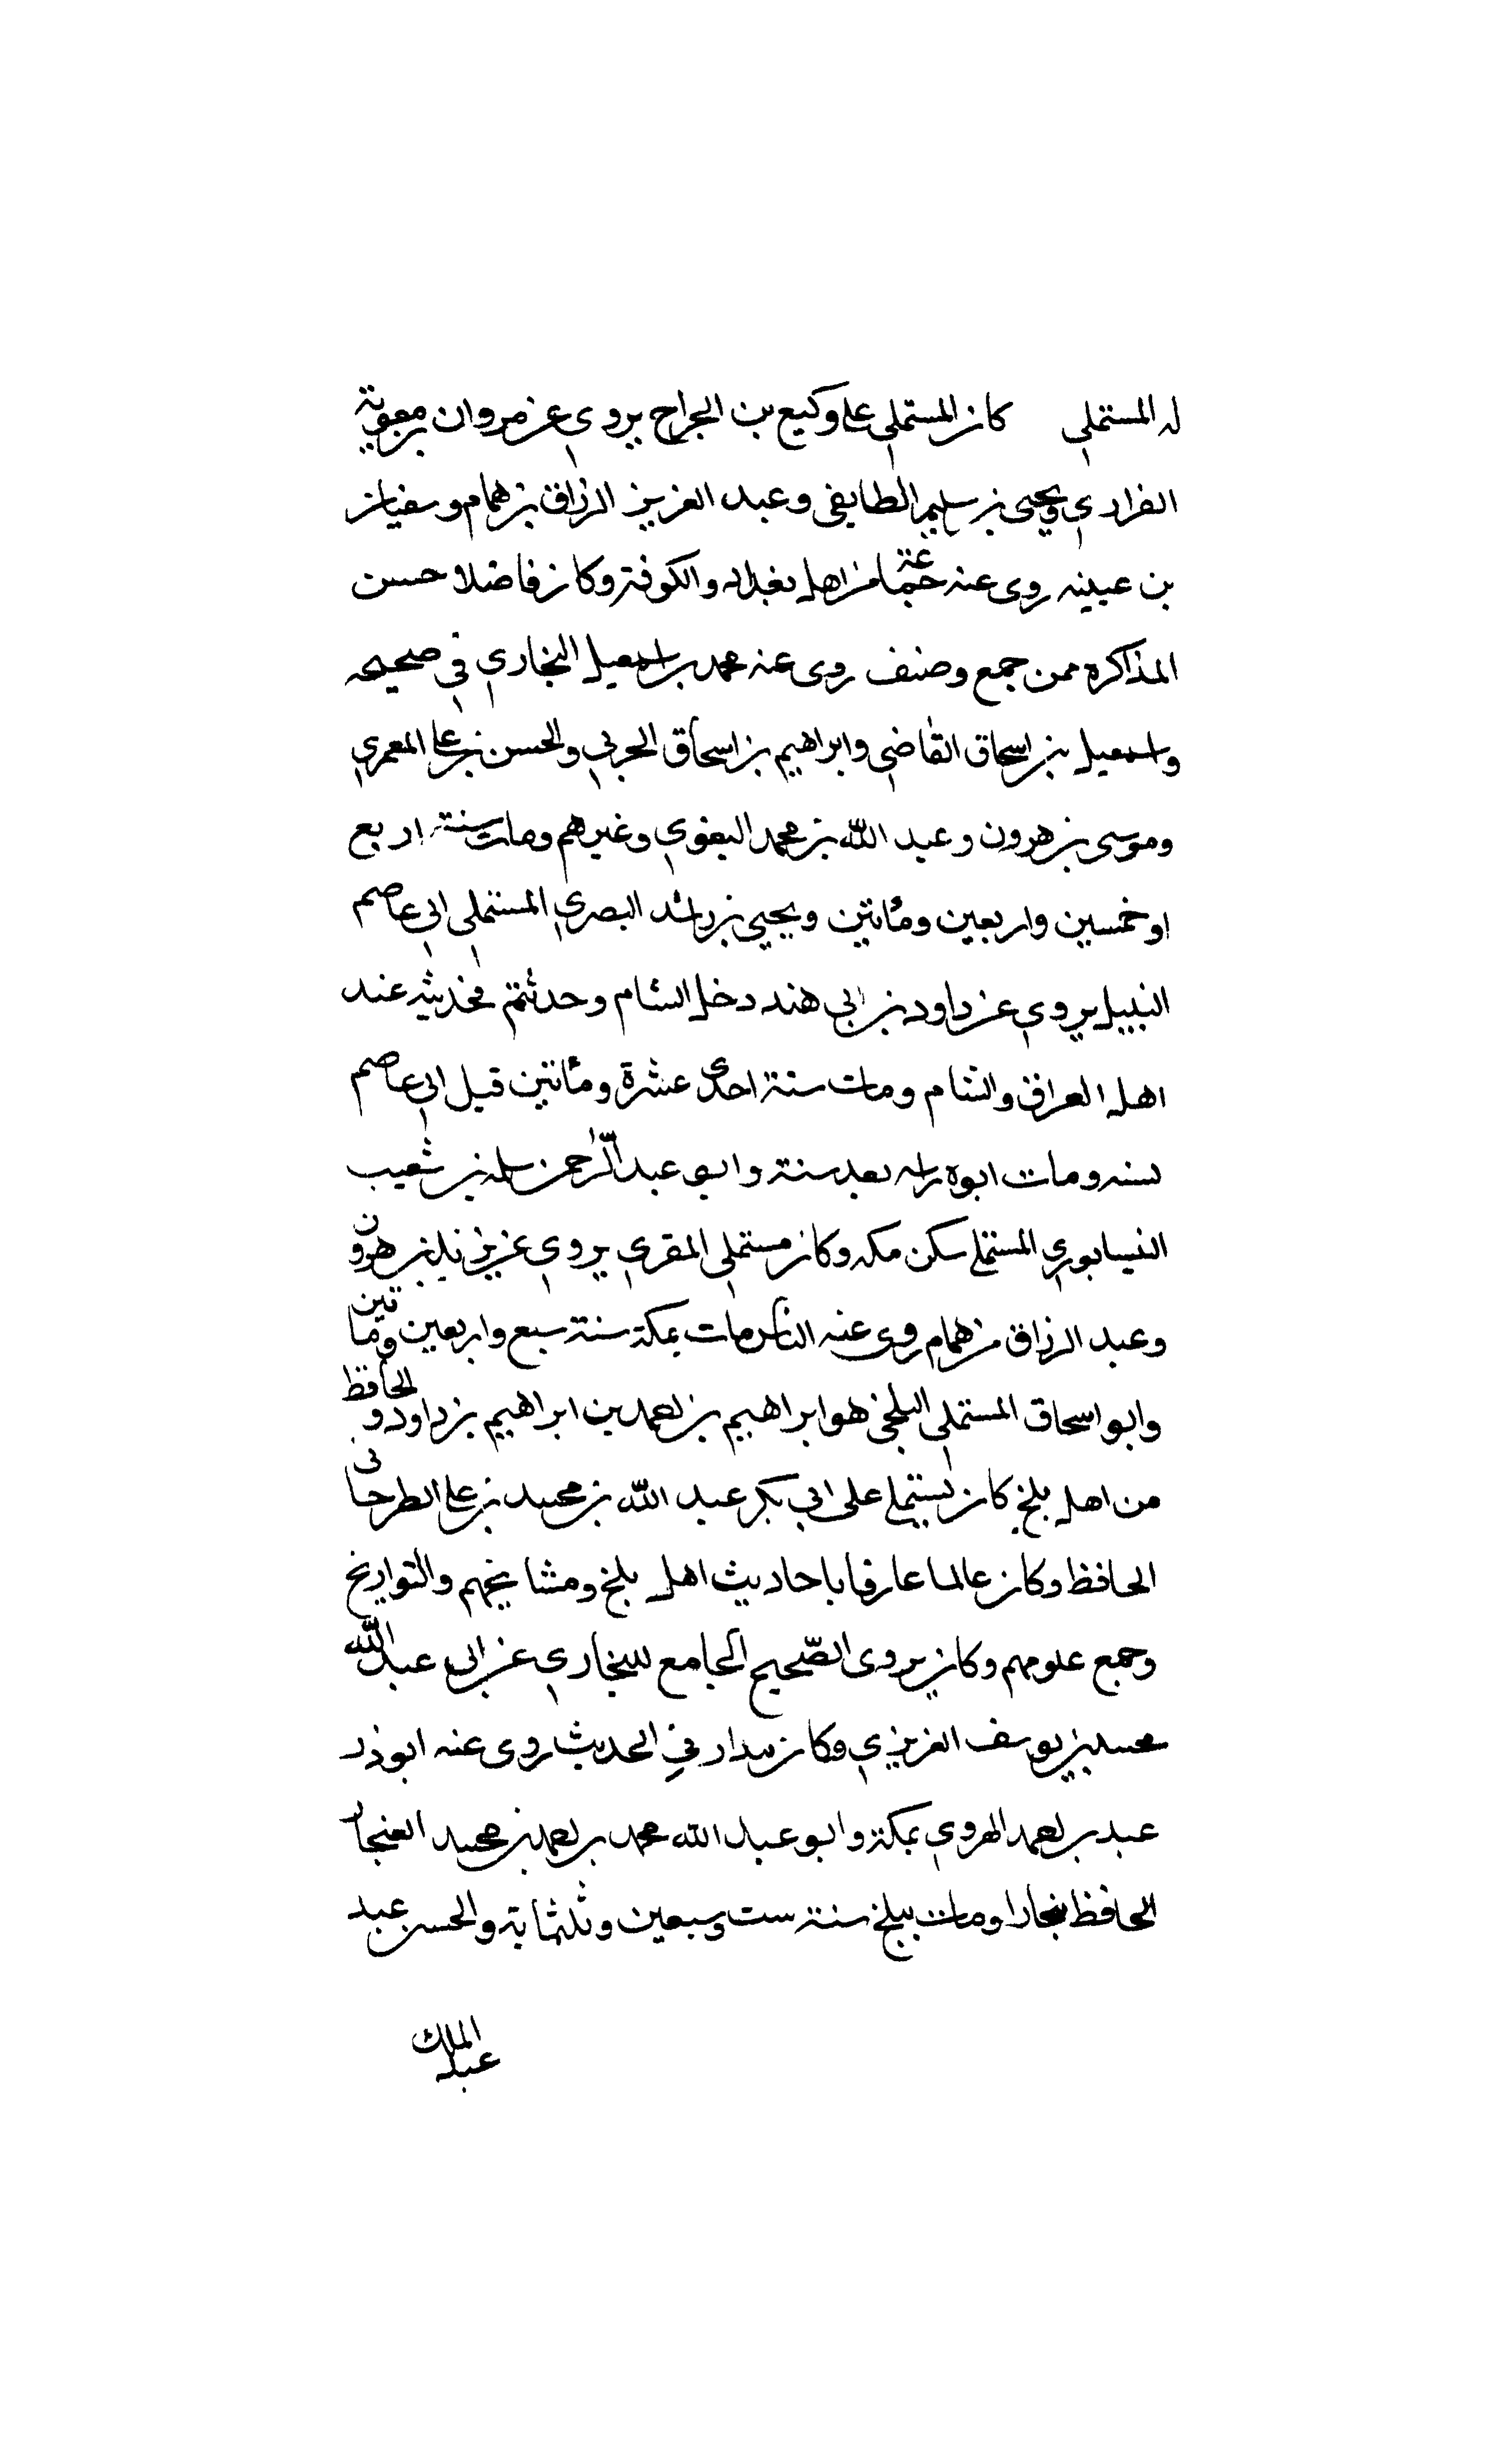 له المستملي كان المستملي على وكيع بن الجراح يروي عن مروان بن معوية
الفزاري ويحيى بن سليم الطايفي وعبد العزيز الرزاق بن همام وسفيان
بن عيينه روى عنه جماعة من اهل بغداد والكوفة وكان فاضلا حسن
المذاكره ممن جمع وصنف روى عنه محمد بن اسمعيل البخاري في صحيحه
واسمعيل بن اسحاق القاضي وابراهيم بن اسحاق الحربي والحسن بن علي المعمري
وموسى بن هرون وعبد الله بن محمد البغوي وغيرهم ومات سنة اربع
او خمسين واربعين ومائتين ويحيى بن راشد البصري المستملي ابي عاصم
النبيل يروي عن داود بن ابي هند دخل الشام وحدثهم فحديثه عند
اهل العراق والشام ومات سنة احدى عشرة ومائتين قبل ابي عاصم
بسنه ومات ابوه بعد سنة وابو عبد الرحمن سلمه بن شعيب
النيسابوري المستملي سكن مكه وكان مستملي المقري يروي عن يزيد بن هرون
وعبد الرزاق بن همام روى عنه الناس مات بمكة سنة سبع واربعين ومائتين
وابو اسحاق المستملي البلخي هو ابراهيم بن احمد بن ابراهيم بن داود و الحافظ
من اهل بلخ كان يستملي على ابي بكر عبد الله بن محمد بن علي الطرخاني
الحافظ وكان عالما عارفا باحاديث اهل بلخ ومشايخهم والتواريخ
وجمع علومهم وكان يروي الصحيح الجامع للبخاري عن ابي عبد الله
محمد بن يوسف الفربري وكان بندار في الحديث روى عنه ابو ذر
عبد بن احمد الهروي بمكة وابو عبد الله محمد بن احمد بن محمد الغنجار
الحافظ ببخارا ومات ببلخ سنة ست وسبعين وثلثماية والحسن عبد
عبد الملك